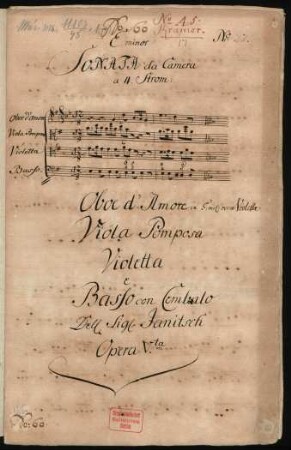 No. 60
No. A 5.
Kramer.
No.
E minor
SONATA da Camera
a 4 Strom.
Oboe d'Amore
Viola Pomposa
Violetta
Basso.
Oboe d'Amore
Violetta
Viola Pomposa
Violetta
e
Basso con Cembalo
Dell Sigl. Janitsch
Opera V.ta
No: 60